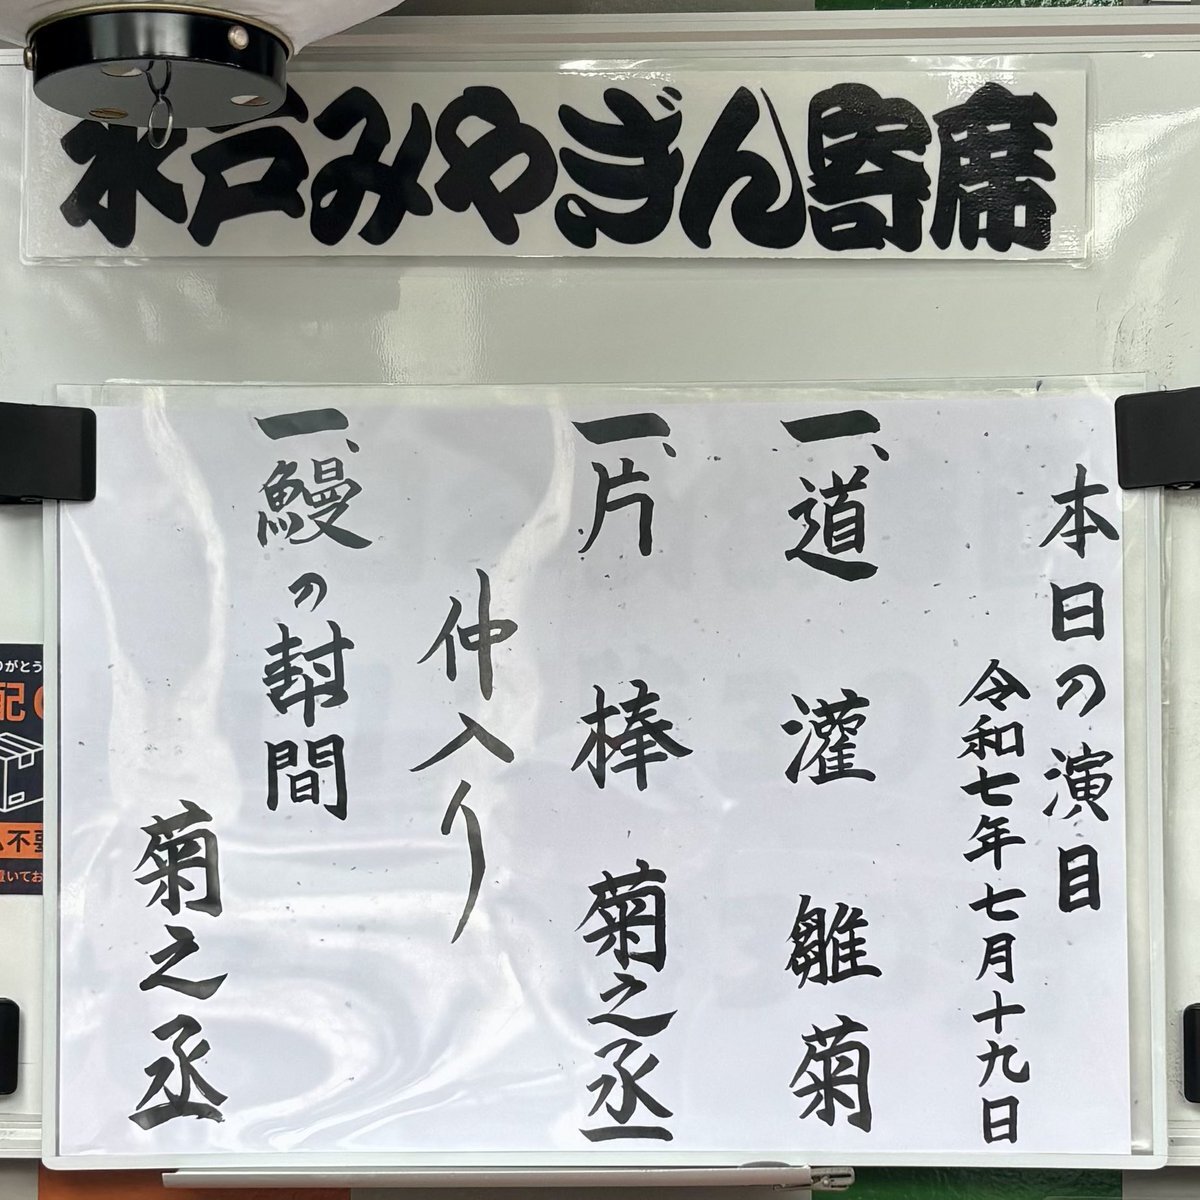 水戸みやぎん寄席
本日の演目
令和七年七月十九日
一、道灌 雛菊
一、片棒 菊之丞
仲入り
一、鰻の幇間
菊之丞
りがとう
配
不要
置いてお